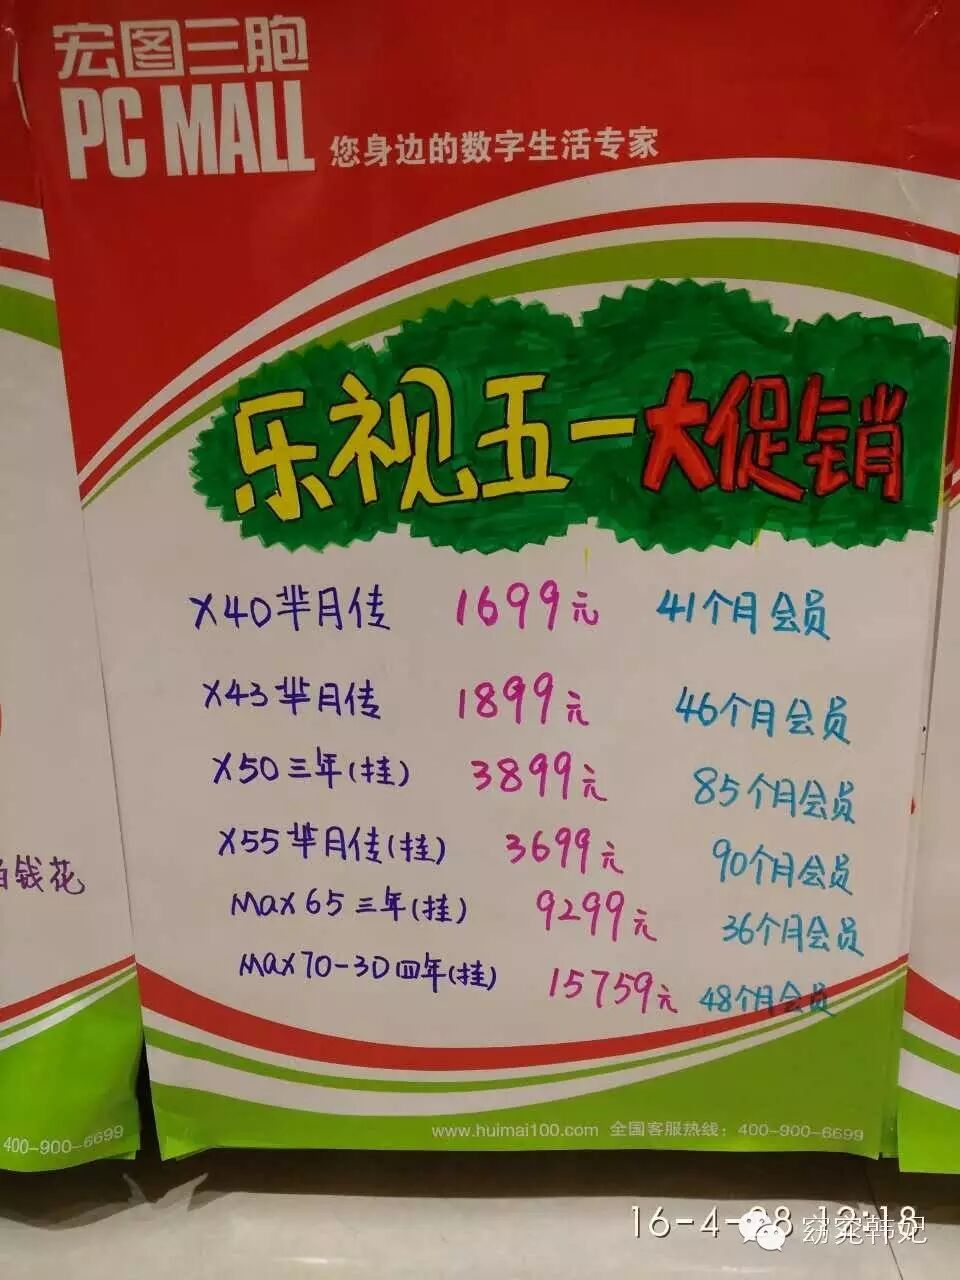 宏图三胞
PC MALL 您身边的数字生活专家
乐视五一大促销
X40芈月传 1699元 41个月会员
X43芈月传 1899元 46个月会员
X50三年(挂) 3899元 85个月会员
X55芈月传(挂) 3699元 90个月会员
Max65三年(挂) 9299元 36个月会员
Max70-3D四年(挂) 15759元 48个月会员
钱花
www.huimai100.com 全国客服热线：400-900-6699
400-900-6699
16-4-28 12:18
窈窕韩妃